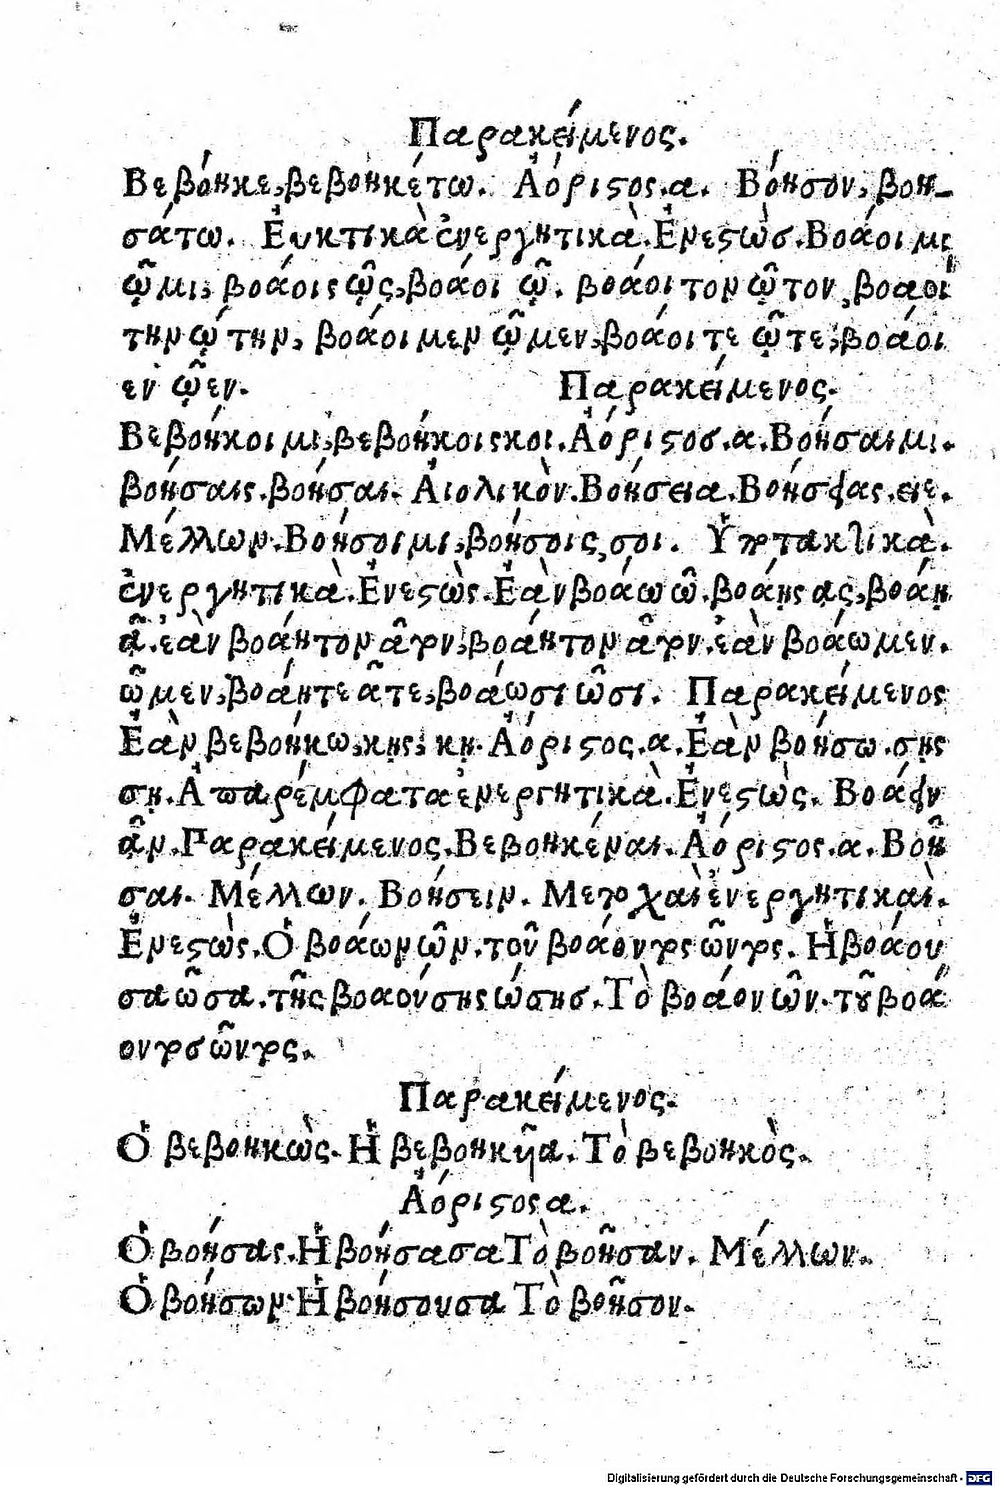 Παρακείμενος.
Βεβόηκε, βεβοηκέτω. Ἀόριϛος.α. Βόησον, βοη-
σάτω. Ἐυκτικὰ ἐνεργητικὰ. Ἐνεϛὼσ. Βοάοιμι
ῷμι, βοάοις ῷς, βοάοι ῷ. βοάοιτον ῷτον, βοαοί
την ῴτην, βοάοιμεν ῷμεν, βοάοιτε ῷτε, βοάοι
εν ῷεν. Παρακείμενος.
Βεβοήκοιμι, βεβοήκοις κοι. Ἀόριϛοσ.α. Βοήσαιμι.
βοήσαις. βοήσαι. Ἀιολικὸν. Βοήσεια. Βοήσειας. ειε.
Μέλλων. Βοήσοιμι, βοήσοις, σοι. Ὑποτακτικὰ.
ἐνεργητικὰ. Ἐνεϛὼς. Ἐὰν βοάω ῶ. βοάῃς ᾷς, βοάῃ
ᾷ. ἐὰν βοάητον ᾶτον, βοάητον ᾶτον. ἐὰν βοάωμεν.
ῶμεν, βοάητε ᾶτε, βοάωσι ῶσι. Παρακείμενος
Ἐὰν βεβοήκω, κῃς, κῃ. Ἀόριϛος.α. Ἐὰν βοήσω. σῃς
σῃ. Ἀπαρέμφατα ἐνεργητικὰ. Ἐνεϛὼς. Βοάειν
ᾶν. Παρακείμενος. Βεβοηκέναι. Ἀόριϛος.α. Βοῆ
σαι. Μέλλων. Βοήσειν. Μετοχαὶ ἐνεργητικαὶ.
Ἐνεϛὼς. Ὁ βοάων ῶν. τοῦ βοάοντος ῶντος. Ἡ βοάου
σα ῶσα. τῆς βοαούσης ώσησ. Τὸ βοάον ῶν. τοῦ βοά
οντοσ ῶντος.
Παρακείμενος.
Ὁ βεβοηκὼς. Ἡ βεβοηκῆα. Τὸ βεβοηκὸς.
Ἀόριϛος α.
Ὁ βοήσας. Ἡ βοήσασα Τὸ βοῆσαν. Μέλλων.
Ὁ βοήσων. Ἡ βοήσουσα Τὸ βοῆσον.
Digitalisierung gefördert durch die Deutsche Forschungsgemeinschaft - DFG